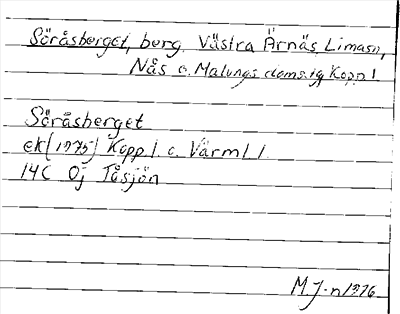 Söråsberget, berg. Västra Ärnäs, Limasn,
Nås o. Malungs doms.ig Kopp.l.
Söråsberget
ek (1975) Kopp.l. o. Värml.l.
14C Öj Tåsjön
M.J-n 1976